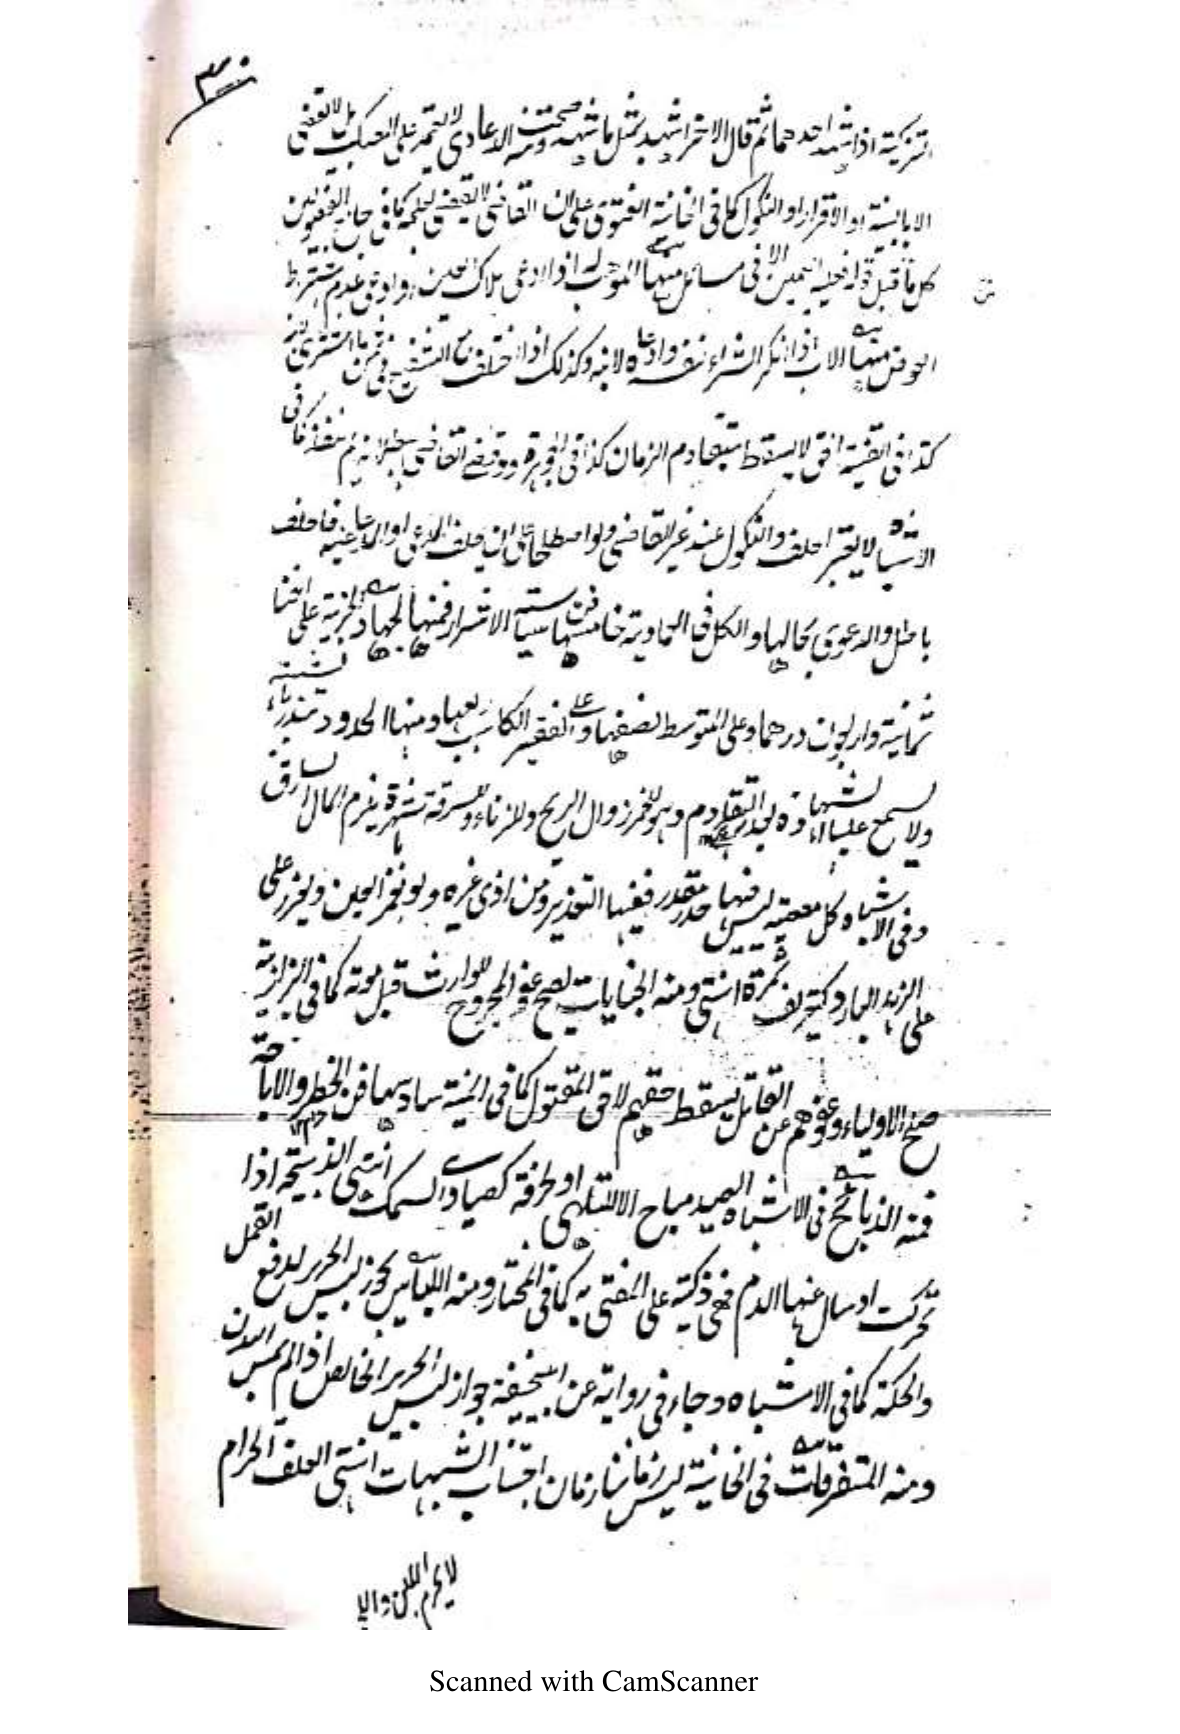 التزكية اذا شهد احدهما ثم قال الاخر اشهد بمثل ما شهد صحت ومنه الدعاوى لا
الا بالبينة او الاقرار او النكول كما فى الخانية الفتوى على ان القاضى لا يقضى بعلمه كما فى جامع الفصولين
كل من قبل قوله فعليه اليمين الا فى مسائل منها الموهوب له اذا ادعى هلاك العين
العوض منها الاب اذا انكر الشراء لنفسه وادعاه لابنه وكذلك اذا اختلف مع الشفيع فى ثمن ما اشتراه
كذا فى القنية الحق لا يسقط بتقادم الزمان كذا فى الجوهرة ولو قضى القاضى ببطلانه لم ينفذ كما فى
الاشباه لا يعتبر الحلف والنكول عند غير القاضى ولو اصطلحا على ان يحلف المدعى او المدعا عليه فالحلف
باطل والدعوى بحالها والكل فى العمادية خامسها فن سياسة الاشرار فمنها الجهاد الجزية على
ثمانية واربعون درهما وعلى المتوسط نصفها وعلى الفقير الكاسب ربعها ومنها الحدود تندرئ بالشبهة
ولا يسمع عليها الشهادة بعد التقادم وهو للخمر زوال الريح وللزناء والسرقة شهر ويلزم المال السارق
وفى الاشباه كل معصية ليس فيها حد مقدر ففيها التعزير ومن اذى غيره ولو بغمز العين ويعزر على
على الورد البارد كتعريف تمرة انتهى ومنه الجنايات يصح عفو المجروح للوارث قبل موته كما فى البزازية
صلح الاولياء وعفوهم عن القاتل يسقط حقهم لا حق المقتول كما فى المنية سادسها فن الحظر والاباحة
فمنه الذبائح فى الاشباه الصيد مباح الا للتلهى او لحرفة كصيادى السمك انتهى الذبيحة اذا
تحركت او سال عنها الدم فهى ذكية على المفتى به كما فى المختار ومنه اللباس يجوز لبس الحرير لدفع القمل
والحكة كما فى الاشباه وجاء فى رواية عن ابى حنيفة جواز لبس الحرير الخالص اذا لم يمس البدن
ومنه المتفرقات فى الخانية ليس زماننا زمان اجتناب الشبهات انتهى العلف الحرام
لا يحرم اللبن
Scanned with CamScanner